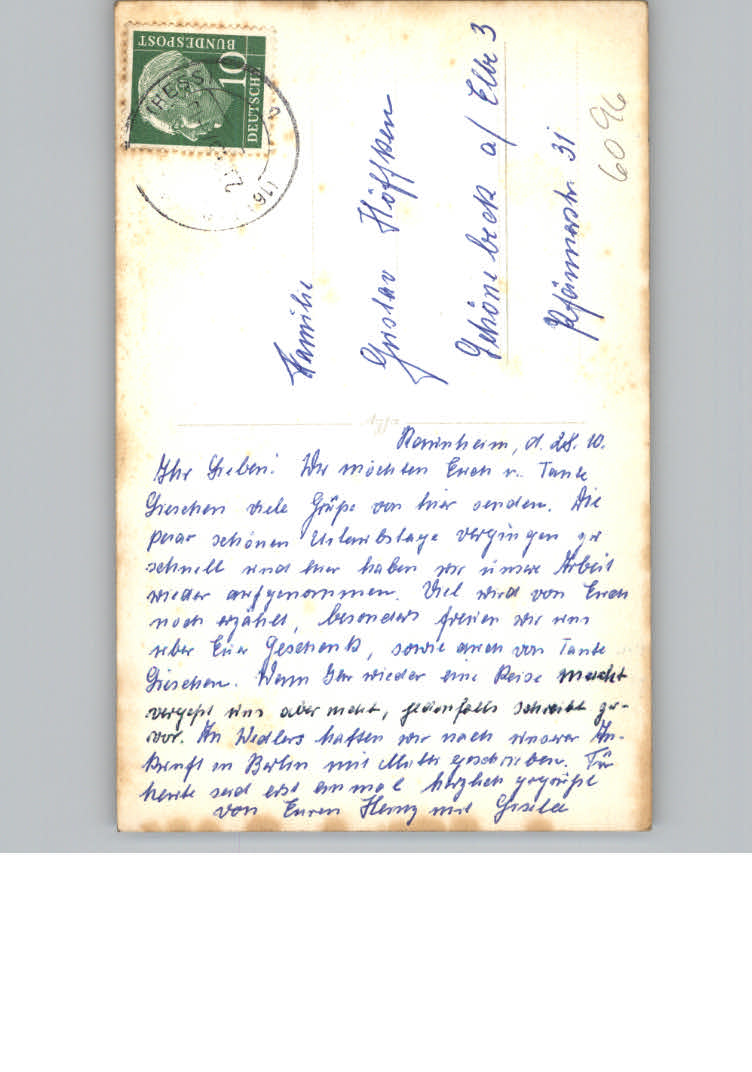 DEUTSCHE
BUNDESPOST
10
6096
Familie
Gustav Höffken
Schönebeck a/ Elbe 3
Pfännerstr. 31
Mannheim, d. 28. 10.
Ihr Lieben! Wir möchten Euch u. Tante
Lieschen viele Grüße von hier senden. Die
paar schönen Urlaubstage vergingen zu
schnell und hier haben wir unsere Arbeit
wieder aufgenommen. Viel wird von Euch
noch erzählt, besonders freuen wir uns
über Euer Geschenk, sowie auch von Tante
Lieschen. Wenn Ihr wieder eine Reise macht
vergeßt uns aber nicht, jedenfalls schreibt zu-
vor. An Wedlers hatten wir nach unserer An-
kunft in Berlin mit Mutti geschrieben. Für
heute seid erst einmal herzlich gegrüßt
von Euren Heinz und Gisela